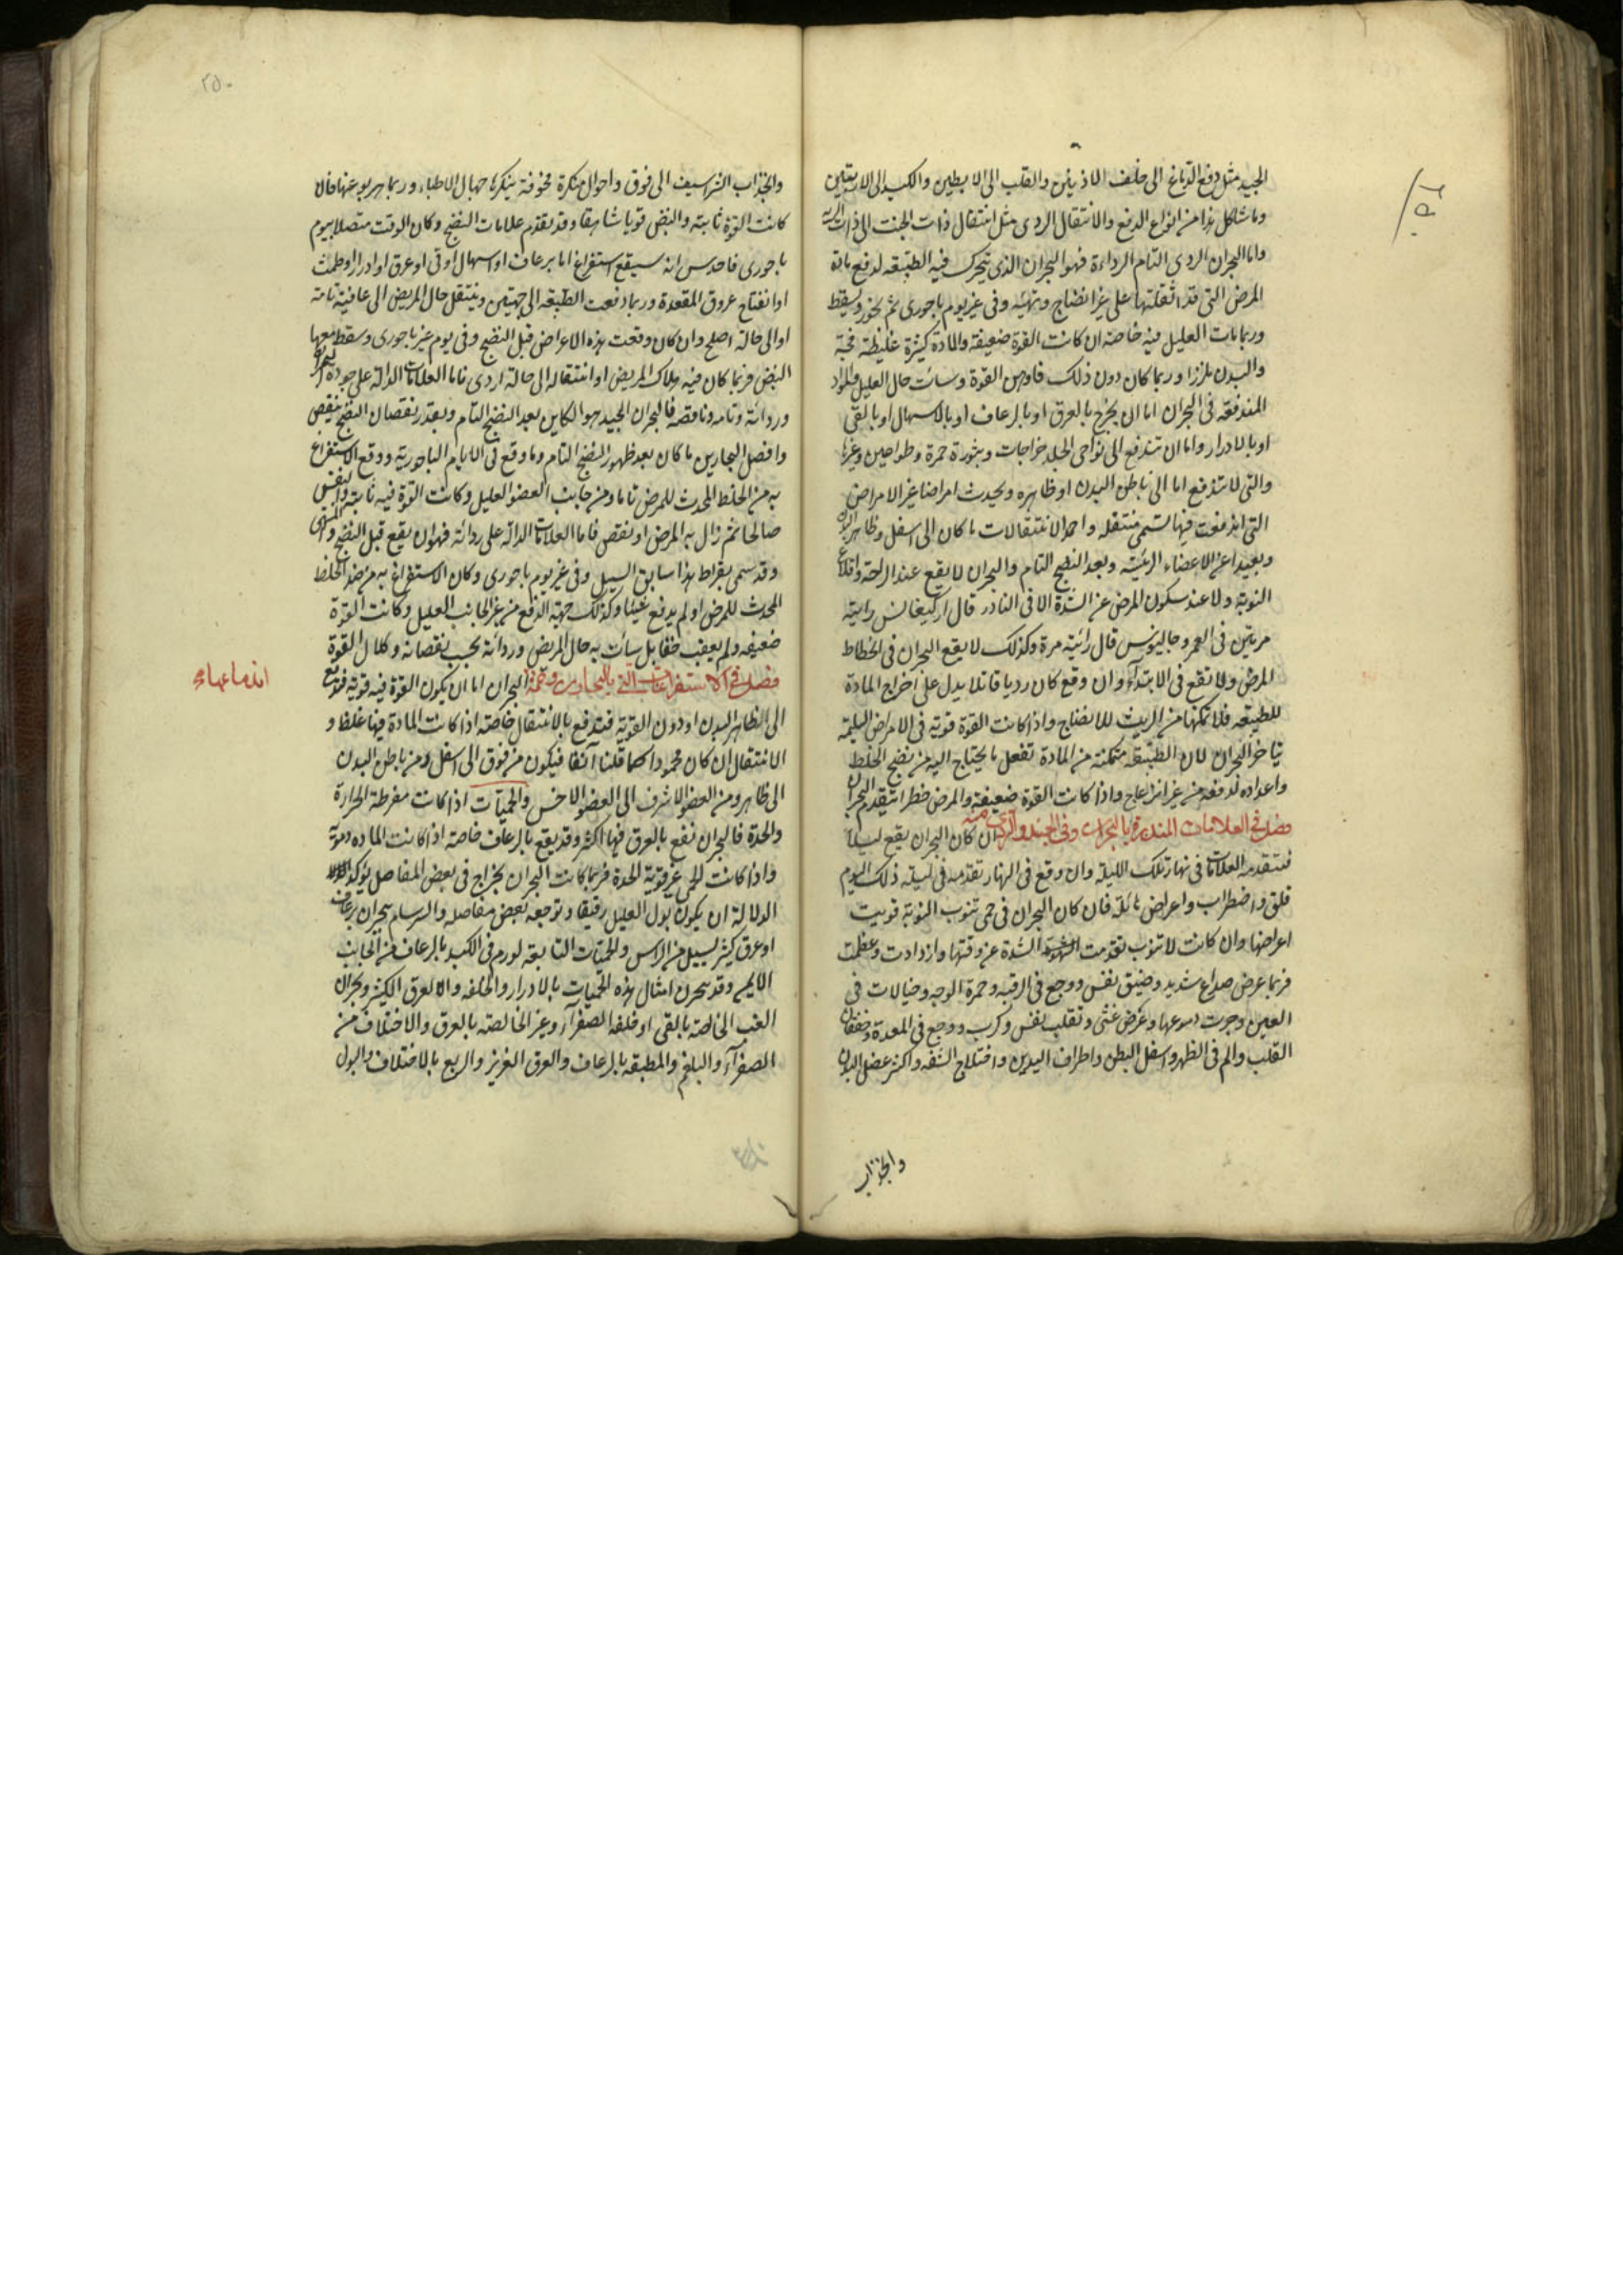 الجيد مثل دفع الدماغ الى خلف الاذنين والقلب الى الابطين والكبد الى الاربيتين
وما شاكل هذا من انواع الدفع والانتقال الردى مثل انتقال ذات الجنب الى ذات الرية
واما البحران الردى التام الرداءة فهو البحران الذى تتحرك فيه الطبيعة لدفع مادة
المرض التى قد اثقلتها على غير انضاج وتهيئه وفى غير يوم باحورى ثم تخور وتسقط
وربما مات العليل فيه خاصة ان كانت القوة ضعيفة والمادة كثيرة غليظة فجة
والبدن ملززا وربما كان دون ذلك فاوهن القوة وسائت حال العليل والمواد
المندفعة فى البحران اما ان يخرج بالعرق او بالرعاف او بالاسهال او بالقى
او بالادرار واما ان تندفع الى نواحى الجلد خراجات وبثورة حمرة وطواعين وغيرها
والتى لا تندفع اما الى باطن البدن او ظاهره ويحدث امراضا غير الامراض
التى اندفعت فيها تسمى منتقلة واحمد الانتقالات ما كان الى اسفل وظاهر البدن
وبعيدا عن الاعضاء الرئيسه وبعد النضج التام والبحران لا يقع عند الراحة واقلاع
النوبة ولا عند سكون المرض عن الشدة الا فى النادر قال اركيغانس رايته
مرتين فى العمر وجالينوس قال رايته مرة وكذلك لا يقع البحران فى انحطاط
المرض ولا تقع فى الابتدآء وان وقع كان رديا قاتلا يدل على اخراج المادة
للطبيعة فلا تمكنها من الريث للانضاج واذا كانت القوة قوية فى الامراض السليمة
يتاخر البحران لان الطبيعة متمكنة من المادة تفعل ما يحتاج اليه من نضج الخلط
واعداده لدفعه من غير انزعاج واذا كانت القوة ضعيفة والمرض خطرا يتقدم البحران
فصل فى العلامات المنذرة بالبحران وفى الجيد والردى منه ان كان البحران يقع ليلا
فتتقدمه العلامات فى نهار تلك الليلة وان وقع فى النهار تقدمه فى ليلة ذلك اليوم
قلق واضطراب واعراض هائلة فان كان البحران فى حمى تنوب النوبة قويت
اعراضها وان كانت لا تنوب تقدمت الشدة عن وقتها وازدادت وعظمت
فربما عرض صداع شديد وضيق نفس ووجع فى الرقبة وحمرة الوجه وخيالات فى
العين وجرت دموعها وعرض غثى وتقلب نفس وكرب ووجع فى المعدة وخفقان
القلب والم فى الظهر واسفل البطن واطراف اليدين واختلاج الشفه واكثر عضل البدن
وانجذاب
٢٥٠
وانجذاب الشراسيف الى فوق واحوال منكرة مخوفة ينكرها جهال الاطباء وربما هربوا عنها فان
كانت القوة ثابتة والنبض قويا شاهقا وقد تقدم علامات النضج وكان الوقت متصلا بيوم
باحورى فاحدس انه سيقع استفراغ اما برعاف او اسهال او قى او عرق او ادرار او طمث
او انفتاح عروق المقعدة وربما دفعت الطبيعة الى جهتين وينتقل حال المريض الى عافية تامة
او الى حالة اصلح وان كان وقعت هذه الاعراض قبل النضج وفى يوم غير باحورى وسقط معها
النبض فربما كان فيه هلاك المريض او انتقاله الى حالة اردى فاما العلامات الدالة على جودة البحران
وردائة وتامه وناقصه فالبحران الجيد هو الكاين بعد النضج التام وبقدر نقصان النضج ينقص
وافضل البحارين ما كان بعد ظهور النضج التام وما وقع فى الايام الباحورية ووقع الاستفراغ
به من الخلط المحدث للمرض تاما ومن جانب العضو العليل وكانت القوة فيه ثابتة والنفس
صالحا ثم زال به المرض او نقص فاما العلامات الدالة على ردائة فهو ان يقع قبل النضج
وقد سمى بقراط هذا سابق السيل وفى غير يوم باحورى وكان الاستفراغ به من ضد الخلط
المحدث للمرض او لم يدفع شيئا وكذلك جهة الدفع من غير الجانب العليل وكانت القوة
ضعيفه ولم يعقب خفا بل سائت به حال المريض وردائة بحسب نقصانه وكلال القوة
فصل فى الاستفراغات التى بالبحارين البحران اما ان يكون القوة فيه قوية فتدفع
الى ظاهر البدن او دون القوية فتدفع بالانتقال خاصة اذا كانت المادة فيها غلظ و
الانتقال ان كان محمودا كما قلنا آنفا فيكون من فوق الى اسفل ومن باطن البدن
الى ظاهر ومن العضو الاشرف الى العضو الاخس والحميات اذا كانت مفرطة الحرارة
والحدة فالبحران تقع بالعرق فيها اكثر وقد يقع بالرعاف خاصة اذا كانت الماده دموية
واذا كانت الحمى غير قوية الحدة فربما كانت البحران بخراج فى بعض المفاصل يؤكد
الدلالة ان يكون بول العليل رقيقا وتوجعه بعض مفاصله والسرسام بحران برعاف
او عرق كثير يسيل من الراس والحميات التابعة لورم فى الكبد بالرعاف من الجانب
الايمن وقد بحرن امثال هذه الحميات بالادرار والخلفه والعرق الكثير وبحران
الغب الخالصة بالقى او خلفة الصفرآء وغير الخالصة بالعرق والاختلاف من
الصفرآء والبلغم والمطبقة بالرعاف والعرق الغزير والربع بالاختلاف والبول